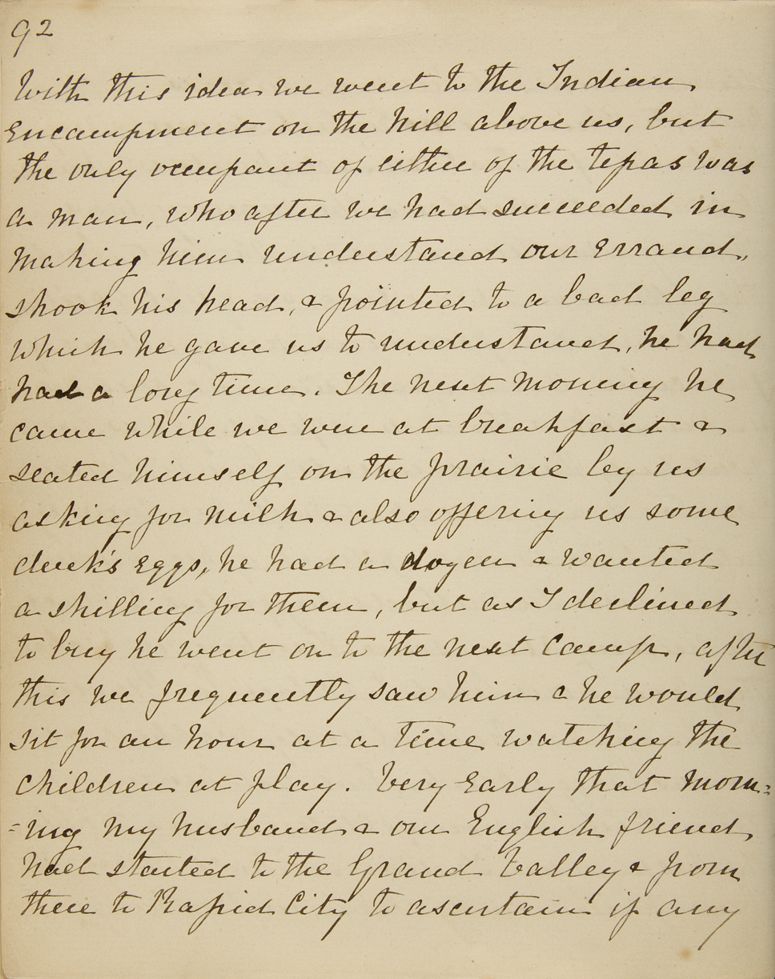 92
With this idea we went to the Indian
Encampment on the hill above us, but
the only occupant of either of the tepas was
a man, who after we had succeeded in
making him understand our errand,
shook his head, & pointed to a bad leg
which he gave us to understand, he had
had a long time. The next morning he
came while we were at breakfast &
seated himself on the prairie by us
asking for milk & also offering us some
duck's eggs, he had a dozen & wanted
a shilling for them, but as I declined
to buy he went on to the next camp, after
this we frequently saw him & he would
sit for an hour at a time watching the
children at play. Very early that morn=
=ing my husband & our English friend
had started to the Grand Valley & from
there to Rapid City to ascertain if any